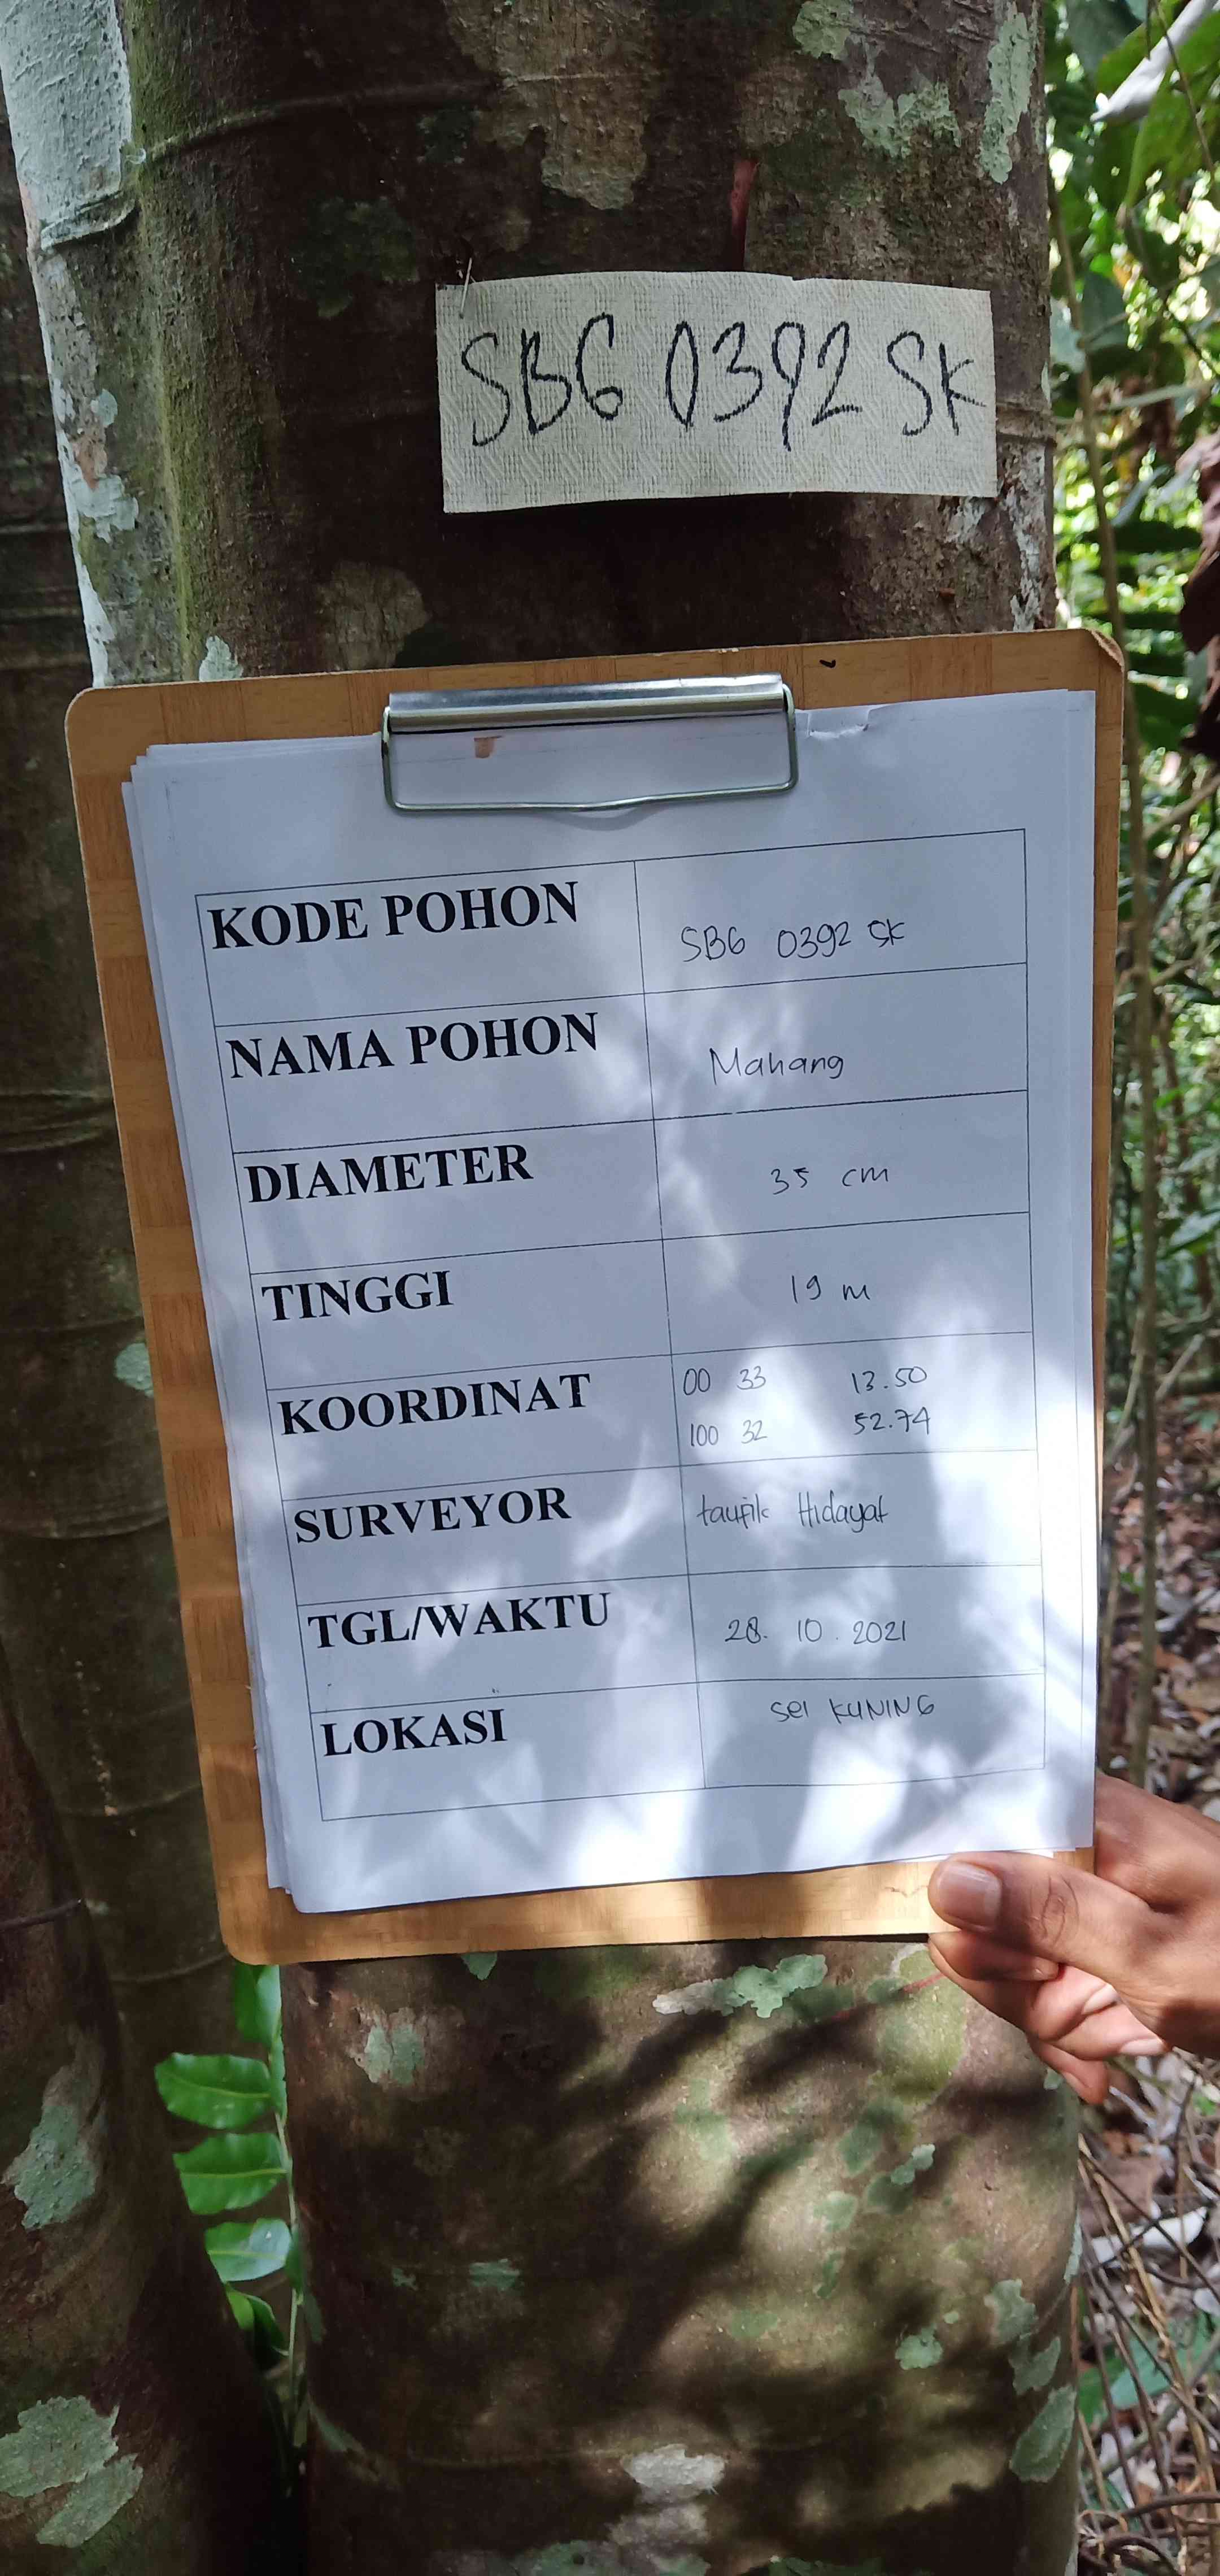 SBG 0392 SK
KODE POHON SBG 0392 SK
NAMA POHON Mahang
DIAMETER 35 cm
TINGGI 19 m
KOORDINAT 00 33 13.50
100 32 52.74
SURVEYOR taufik Hidayat
TGL/WAKTU 28. 10. 2021
LOKASI sei KUNING